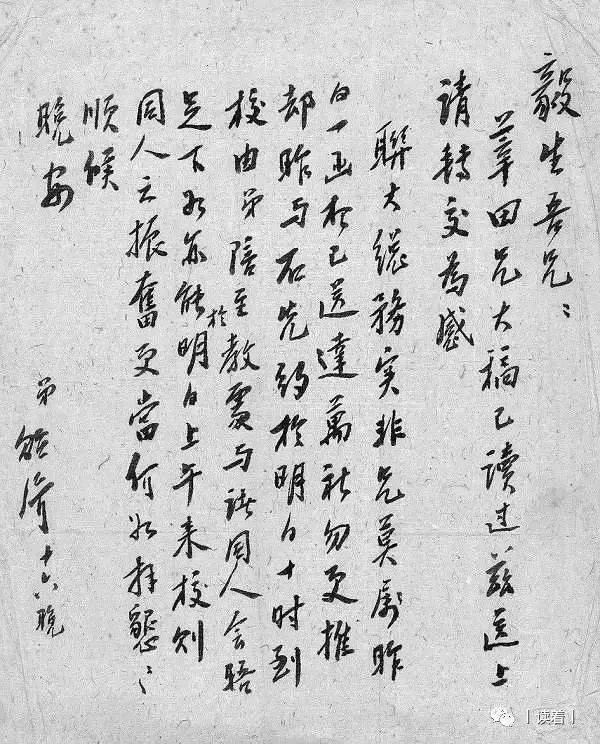 毅生吾兄：
莘田兄大稿已读过兹送上
请转交为感
联大总務实非兄莫属昨
日一函想已送達萬祈勿更推
却昨与石先约於明日十时到
校由弟陪至於教處与诸同人会晤
足下如亦能明日上午来校则
同人之振奮更當何如拜懇〻
順候
晚安
弟 貽琦 十六晚
读着